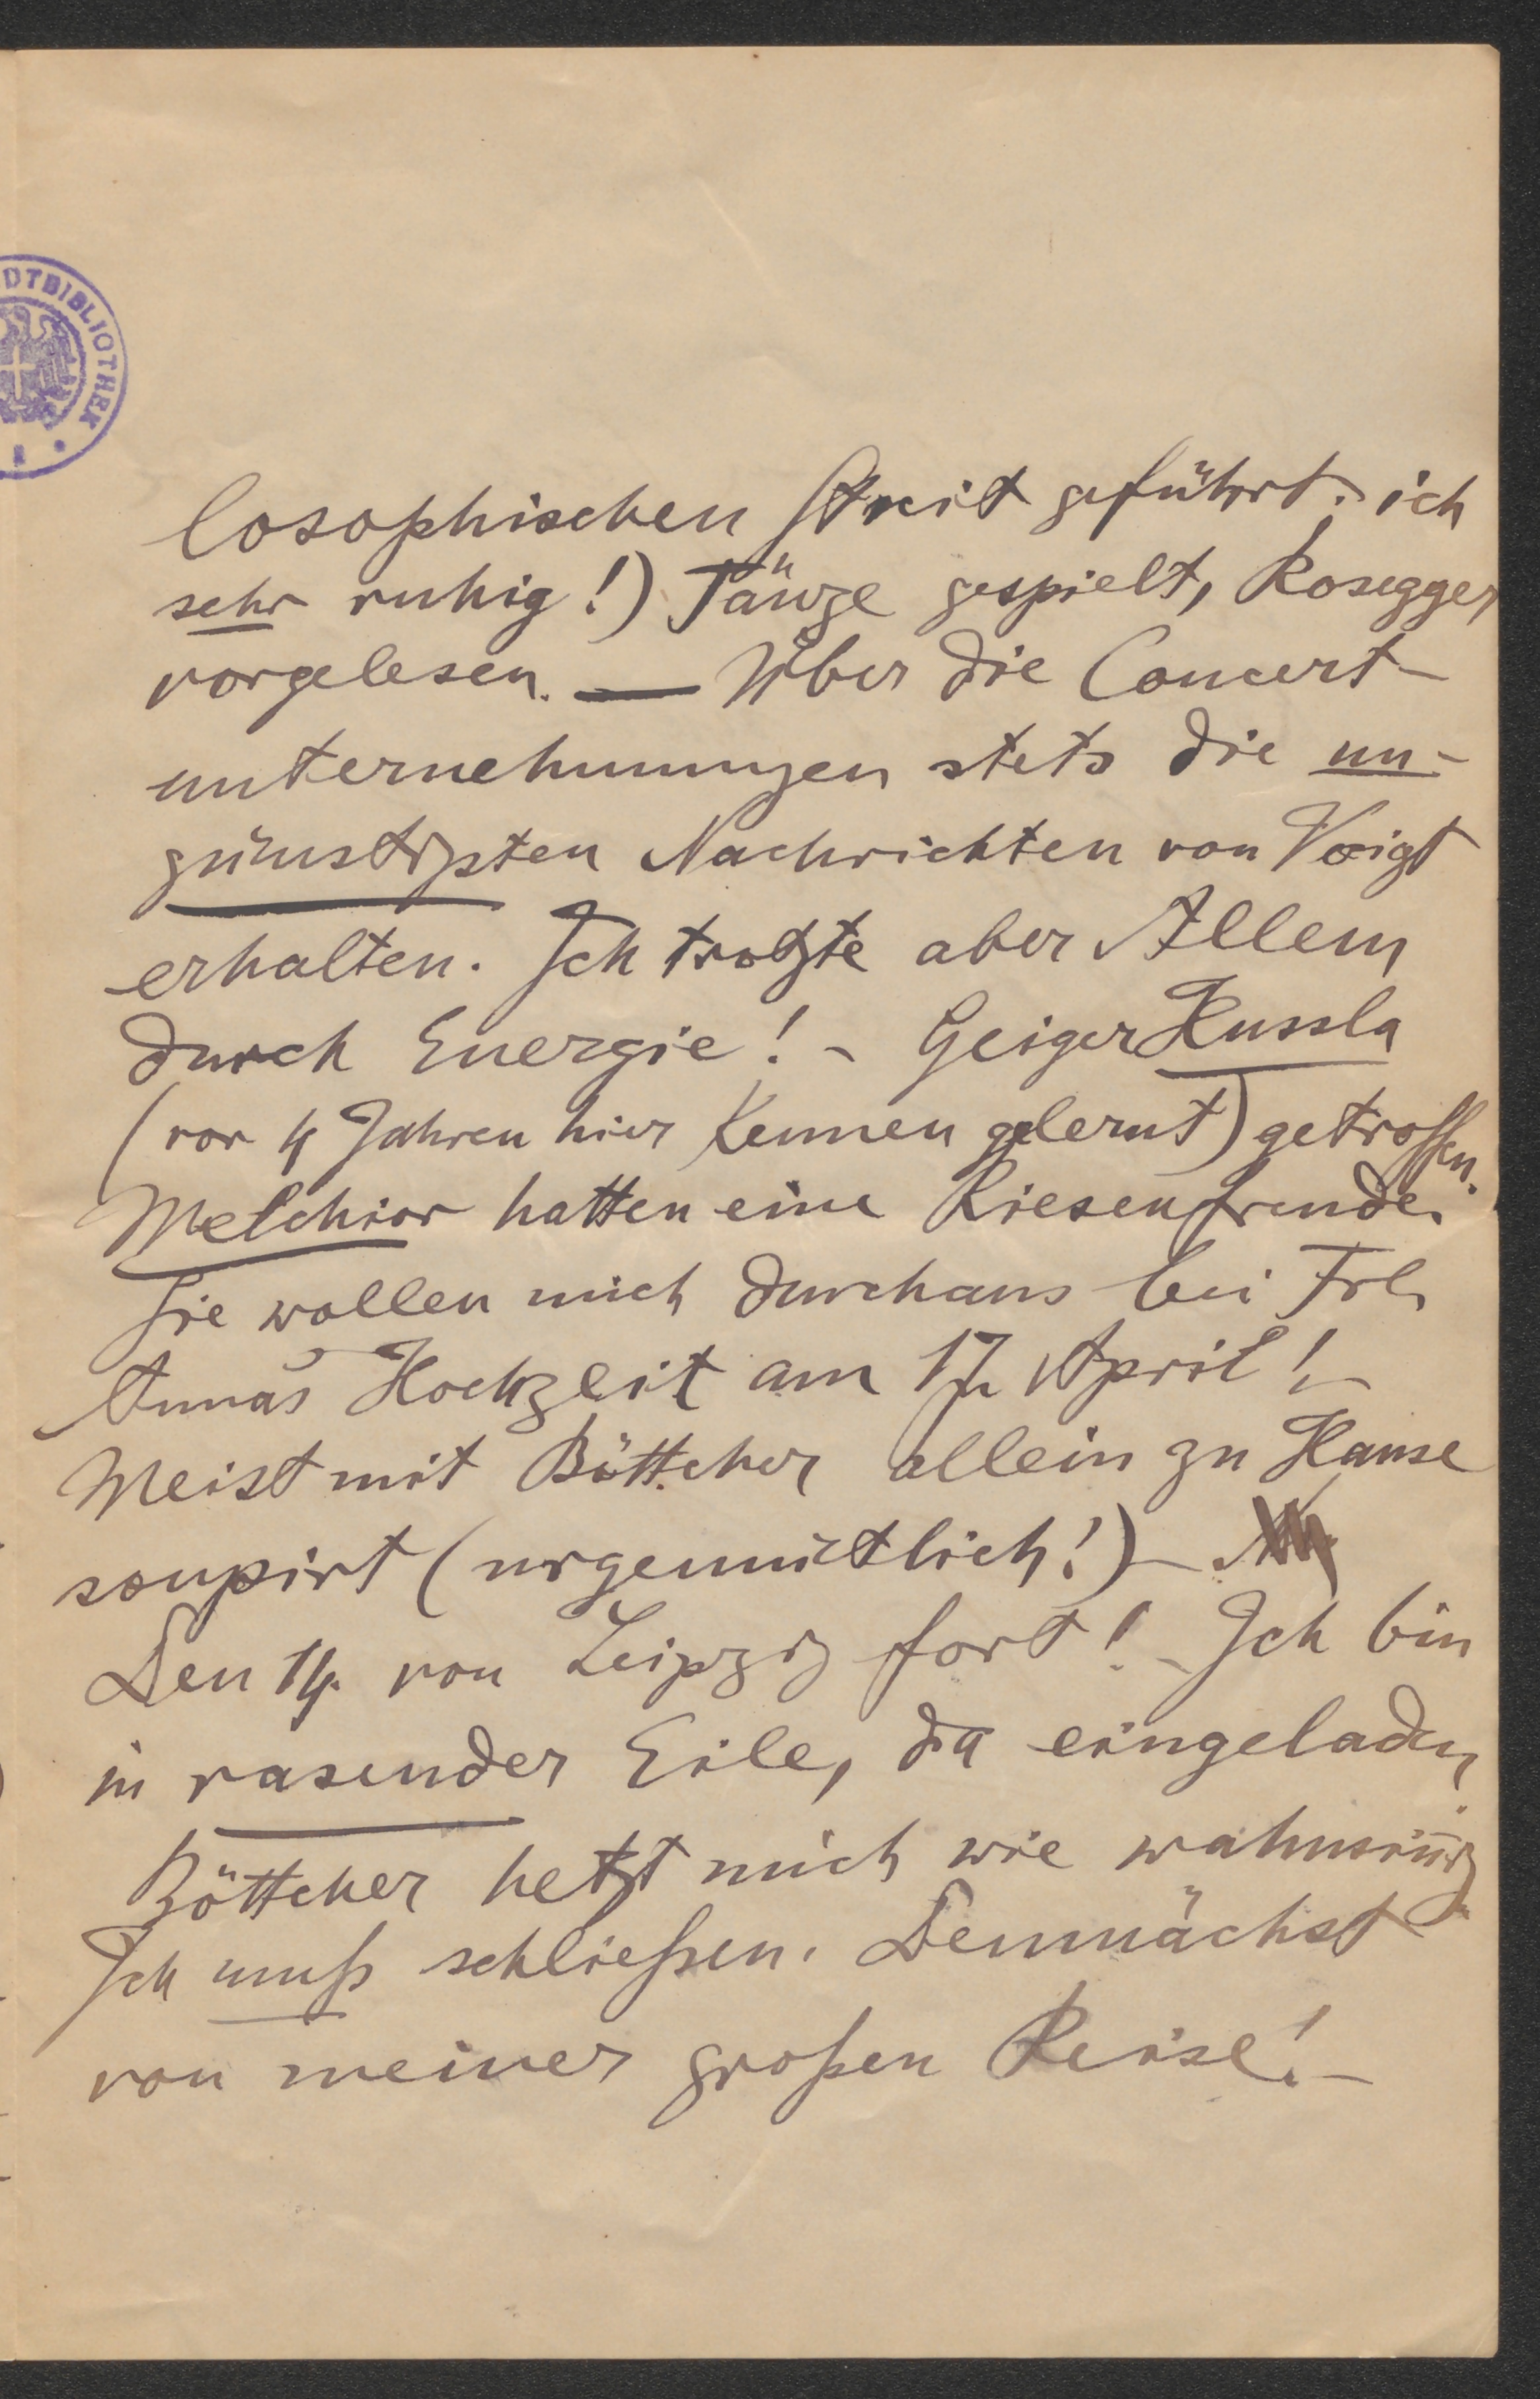 DTBIBLIOTHEK
losophischen Streit geführt. ich
sehr ruhig!) Tänze gespielt, Rosegger
vorgelesen. — Über die Concert-
unternehmungen stets die un-
günstigsten Nachrichten von Voigt
erhalten. Ich trotzte aber Allem
durch Energie! - Geiger Hussla
(vor 4 Jahren hier kennen gelernt) getroffen.
Melchior hatten eine Riesenfreude.
Sie wollen mich durchaus bei Frl.
Annas Hochzeit am 17. April! -
Meist mit Böttcher allein zu Hause
soupirt (urgemütlich!) -
Den 14. von Leipzig fort! - Ich bin
in rasender Eile, da eingeladen
Böttcher hetzt mich wie wahnsinnig.
Ich muß schließen. Demnächst
von meiner großen Reise! -